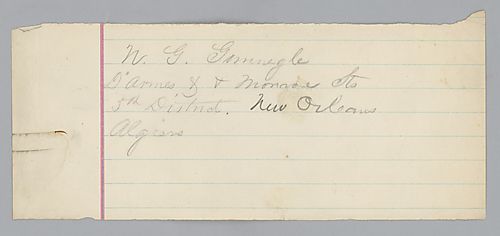 N. G. Gunnegle
D'Armes & & Monroe Sts
5th District. New Orleans
Algiers